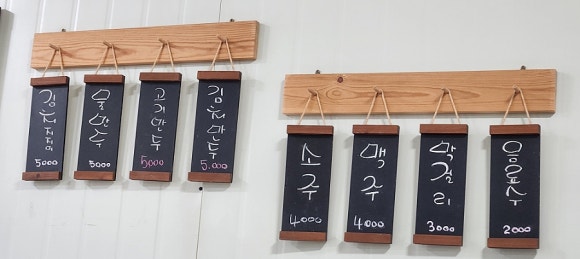 5000
5000
고기만두
5000
김치만두
5,000
소주
4000
맥주
4000
막걸리
3000
음료수
2000